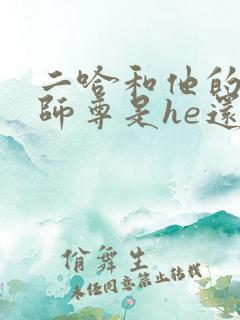 二哈和他的
師尊是he還
偤舞生
未经同意禁止转载